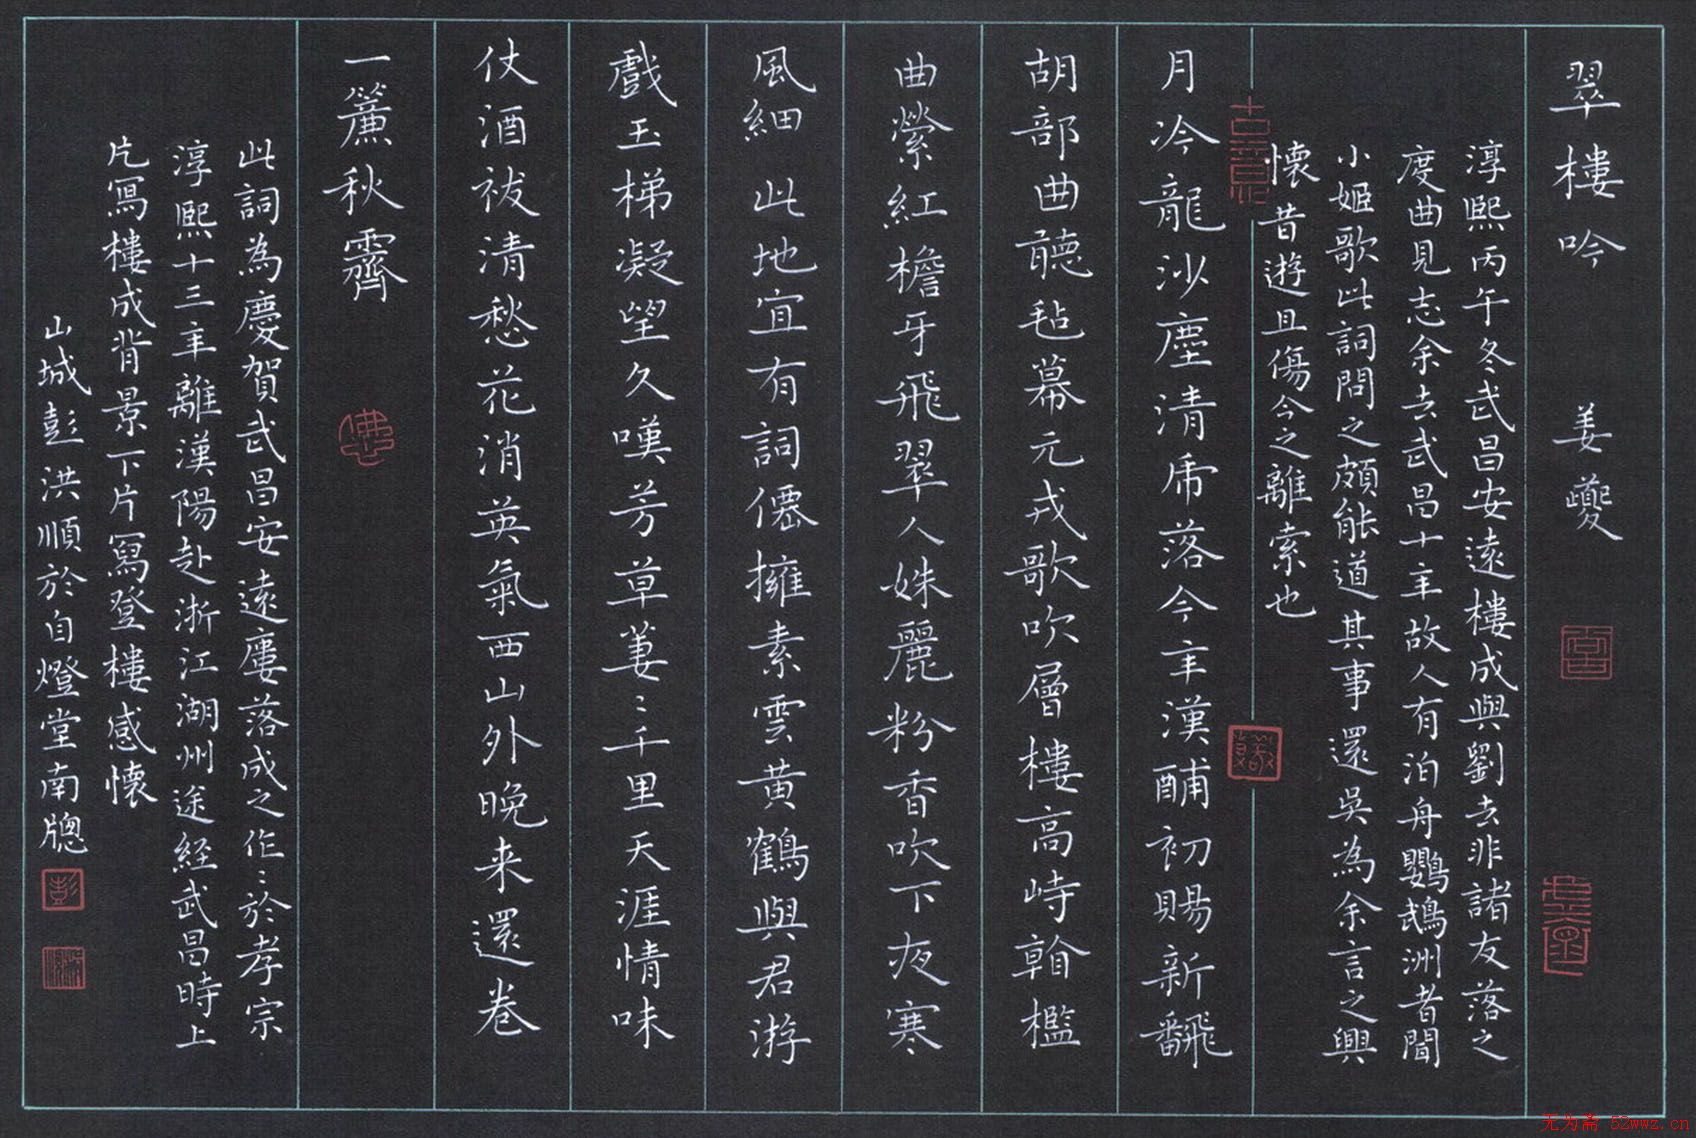 翠樓吟 姜夔
淳熙丙午冬武昌安遠樓成與劉去非諸友落之
度曲見志余去武昌十年故人有泊舟鸚鵡洲者聞
小姬歌此詞問之頗能道其事還吳為余言之興
懷昔遊且傷今之離索也
月冷龍沙塵清虎落今年漢酺初賜新翻
胡部曲聽氊幕元戎歌吹層樓高峙榦檻
曲縈紅檐牙飛翠人姝麗粉香吹下夜寒
風細 此地宜有詞僊擁素雲黃鶴與君游
戲玉梯凝望久嘆芳草萋〻千里天涯情味
仗酒祓清愁花消英氣西山外晚来還卷
一簾秋霽
此詞為慶賀武昌安遠廔落成之作〻於孝宗
淳熙十三年離漢陽赴浙江湖州途經武昌時上
片寫樓成背景下片寫登樓感懷
山城彭洪順於自燈堂南牕
彭
无为斋 52wwz.cn